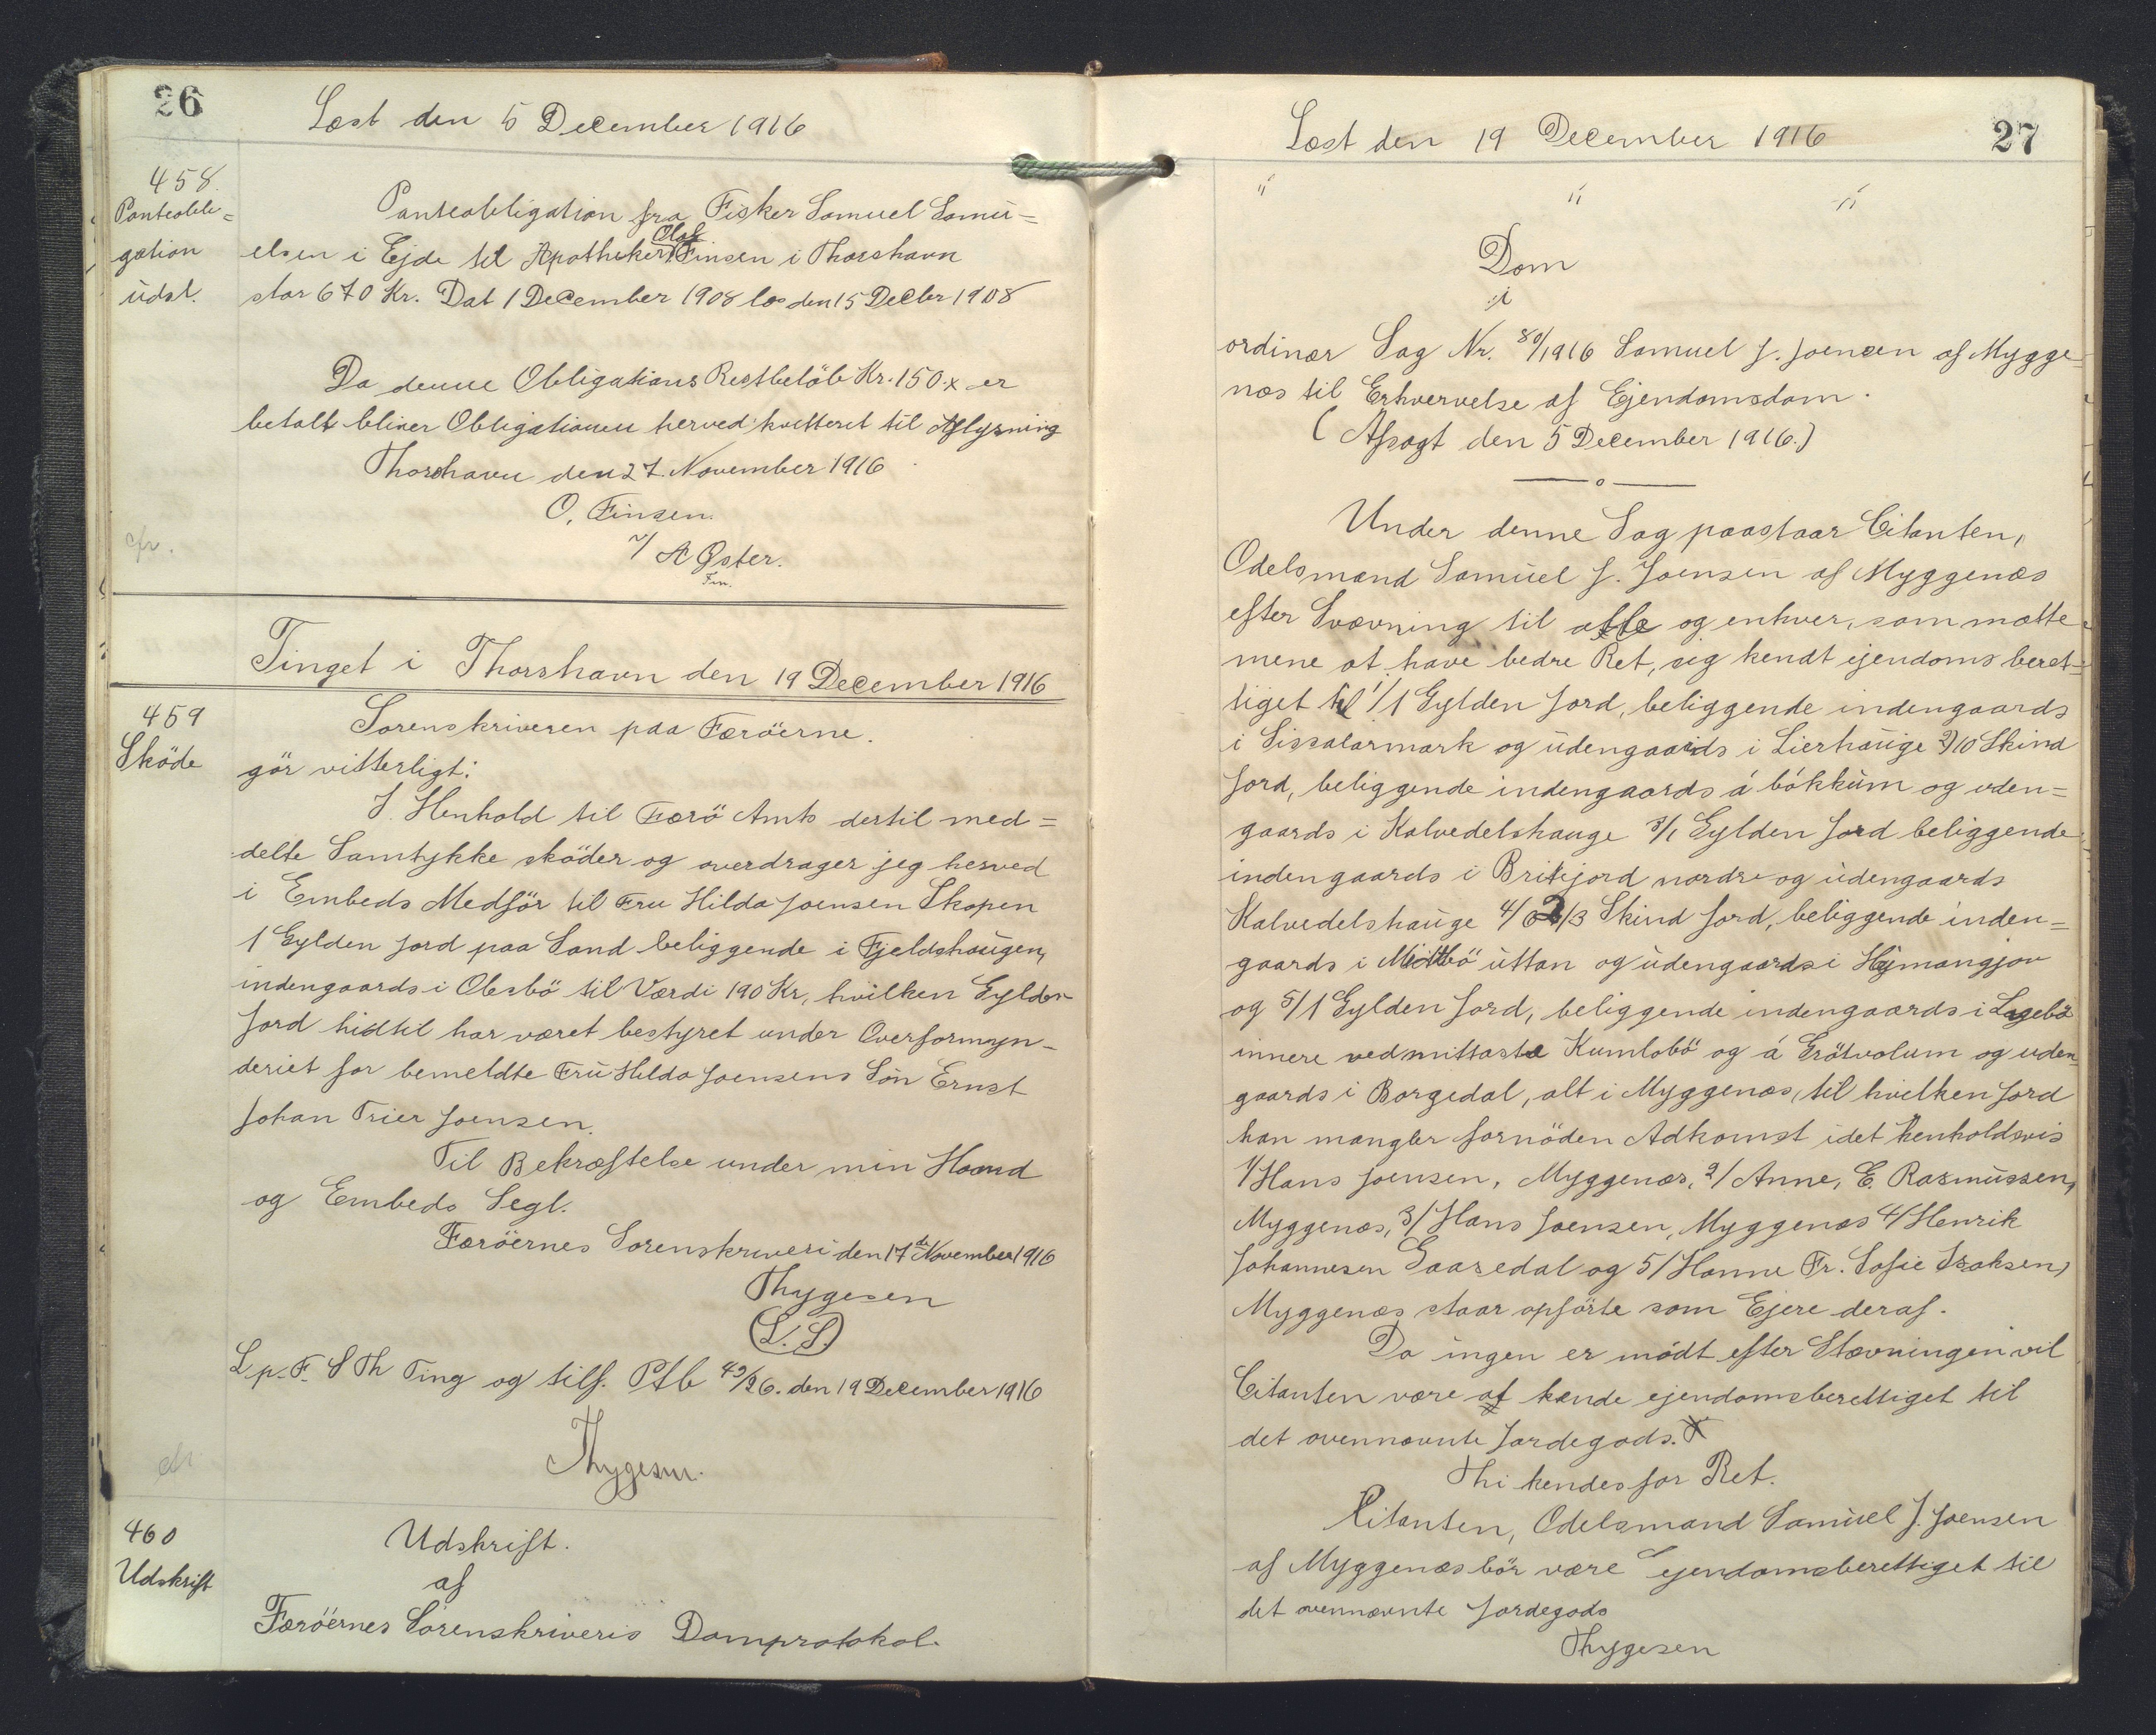 26
Læst den 5 December 1916
458.
Panteobli=
gation
udsl.
Panteobligation fra Fisker Samuel Samu=
elsen i Ejde til Apotheker Olaf Finsen i Thorshavn
stor 670 Kr. Dat 1 December 1908 læs den 15 Decbr 1908
Da denne Obligations Restbelöb Kr. 150.x er
betalt bliver Obligationen herved kvitteret til Aflysning
Thorshavn den 27. November 1916
O. Finsen.
v/ A Øster.
Fm.
cfr.
Tinget i Thorshavn den 19 December 1916
459
Sköde
Sorenskriveren paa Færöerne.
gör vitterligt:
I Henhold til Færö Amts dertil med=
delte Samtykke sköder og overdrager jeg herved
i Embeds Medför til Fru Hilda Joensen Skopen
1 Gylden Jord paa Sand beliggende i Fjeldshaugen,
indengaards i Olesbö til Værdi 190 Kr, hvilken Gylden
Jord hidtil har været bestyret under Overformyn-
deriet for bemeldte Fru Hilda Joensens Sön Ernst
Johan Trier Joensen.
Til Bekræftelse under min Haand
og Embeds Segl.
Færöernes Sorenskriveri den 17de November 1916
Thygesen
(L.S.)
L p. F. S Th Ting og tilf. Ptb 49/26. den 19 December 1916
Thygesen.
cfr
460
Udskrift
Udskrift.
af
Færöernes Sorenskriveris Domprotokol.
27
Læst den 19 December 1916
" " "
Dom
i
ordinær Sag Nr. 80/1916 Samuel J. Joensen af Mygge-
næs til Erhvervelse af Ejendomsdom.
(Afsagt den 5 December 1916.)
Under denne Sag paastaar Citanten,
Odelsmand Samuel J. Joensen af Myggenæs
efter Svævning til alle og enhver, som maatte
mene at have bedre Ret, sig kendt ejendomsberet-
tiget til 1/1 Gylden Jord, beliggende indengaards
i Sissalarmark og udengaards i Lierhauge 2/10 Skind
Jord, beliggende indengaards á bókkum og uden=
gaards i Kalvedelshauge 3/1 Gylden Jord beliggende
indengaards i Britijord nordre og udengaards
Kalvedelshauge 4/6 2/3 Skind Jord, beliggende inden=
gaards i Mittbö uttan og udengaards i Hejmangjov
og 5/1 Gylden Jord, beliggende indengaards i Lagebö
innere ved mittaste Kumlobö og á Grötvolum og uden=
gaards i Borgedal, alt i Myggenæs, til hvilken Jord
han mangler fornöden Adkomst idet henholdsvis
1/ Hans Joensen, Myggenæs, 2/ Anne, E. Rasmussen,
Myggenæs, 3/ Hans Joensen, Myggenæs 4/ Henrik
Johannesen Gaasedal og 5/ Hanne Fr. Sofie Isaksen,
Myggenæs staar opförte som Ejere deraf.
Da ingen er mödt efter Stævningen vil
Citanten være at kende ejendomsberettiget til
det ovennævnte Jordegods.
Thi kendes for Ret.
Citanten, Odelsmand Samuel J. Joensen
af Myggenæs bör være ejendomsberettiget til
det ovennævnte Jordegods
Thygesen